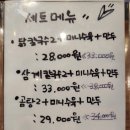 세트 메뉴
• 닭칼국수2+미니수육+만두
: 28.000원 ₩33.000원
• 삼계칼국수2+미니수육+만두
: 33.000원 ₩38.000원
• 곰탕2+미니수육+만두
: 29.000원